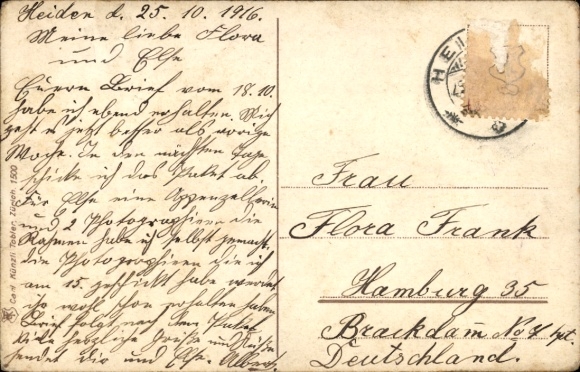 Heiden d. 25. 10. 1916.
Meine liebe Flora
und Else
Euren Brief vom 18.10.
habe ich eben erhalten. Mir
geht es jetzt besser als vorige
Woche. In den nächsten Tagen
schicke ich das Paket ab.
für Else eine Appenzellerin
und 2 Photographien die
Rahmen habe ich selbst gemacht.
die Photographien die ich
am 15. geschickt habe werdet
ihr wohl schon erhalten haben.
Brief folgt nach dem Paket
viele herzliche Grüße und Küsse
sendet dir und Else. Albert
Frau
Flora Frank
Hamburg 35
Brackdamm No 4 hpt.
Deutschland.
HEI
Carl Künzli Tobler, Zürich